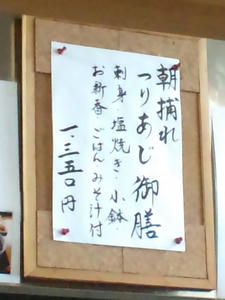 朝捕れ
つりあじ御膳
刺身・塩焼き・小鉢・
お新香・ごはんみそ汁付
一、三五〇円